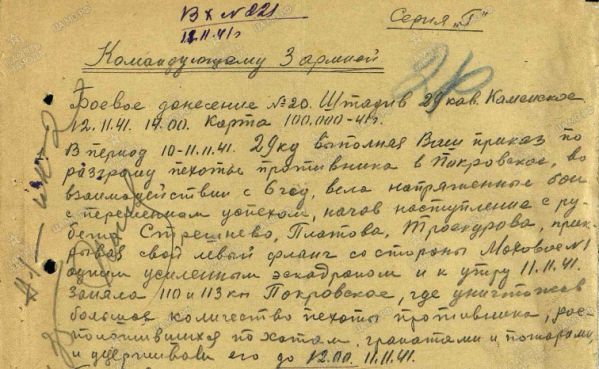 Вх №821
12.11.41г
Серия "Г"
Командующему 3 армией
Боевое донесение №20. Штадив 29 кав. Каменское
12.11.41. 14.00. Карта 100.000-41г.
В период 10-11.11.41. 29кд выполняя Ваш приказ по
разгрому пехоты противника в Покровское, во
взаимодействии с 6 гсд, вела напряженные бои
с переменным успехом, начав наступление с ру-
бежа Стрешнево, Платова, Троекурова, прик-
рывая свой левый фланг со стороны Моховое №1
одним усиленным эскадроном и к утру 11.11.41.
заняла 110 и 113 кп Покровское, где уничтожив
большое количество пехоты противника, рас-
положившихся по хатам, гранатами и пожарами,
и удерживали его до 12.00. 11.11.41.